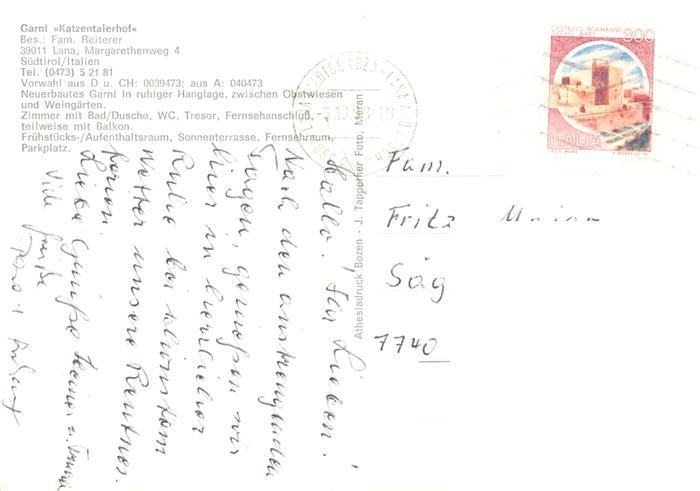 Garni »Katzentalerhof«
Bes.: Fam. Reiterer
39011 Lana, Margarethenweg 4
Südtirol/Italien
Tel. (0473) 5 21 81
Vorwahl aus D u. CH: 0039473; aus A: 040473
Neuerbautes Garni in ruhiger Hanglage, zwischen Obstwiesen
und Weingärten.
Zimmer mit Bad/Dusche, WC, Tresor, Fernsehanschluß,
teilweise mit Balkon.
Frühstücks-/Aufenthaltsraum, Sonnenterrasse, Fernsehraum,
Parkplatz.
Hallo! Ihr Lieben!
Nach den anstrengenden
Tagen, genießen wir
hier in herrlicher
Ruhe bei schönstem
Wetter unsere Rentner
ferien.
Liebe Grüße
Viele Grüße
Athesiadruck Bozen - J. Tappeiner Foto, Meran
CASTELLO NORMANNO
SVEVO BARI
300
ITALIA
LANA
Fam.
Fritz
Säg
7740